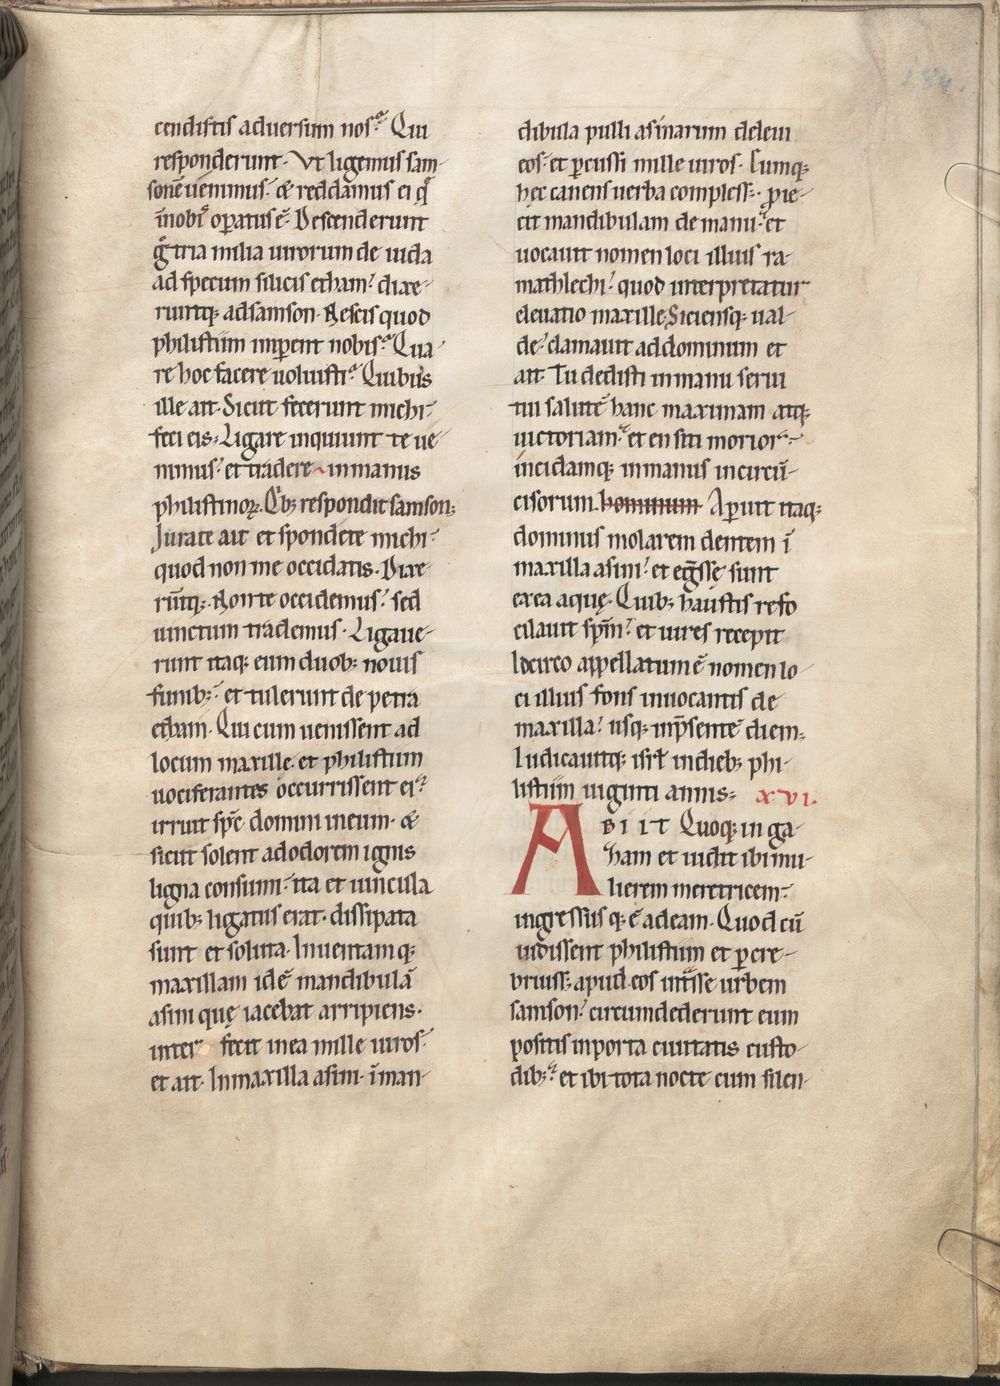 184.
cendistis adversum nos? Qui
responderunt. Ut ligemus sam-
sonē uenimus. & reddamus ei q̄
īnobis opatus ē. Descenderunt
g̊ tria milia uirorum de iuda
ad specum silicis etham. dixe-
runtq; ad samson. Nescis quod
philistiim imꝑent nobis? Qua-
re hoc facere uoluisti? Quibus
ille ait. Sicut fecerunt michi.
feci eis. Ligare inquiunt te ue-
nimus. et tradere in manus
philistinoꝝ. Qib; respondit samson.
Iurate ait et spondete michi.
quod non me occidatis. Dixe-
rūtq;. Non te occidemus. sed
uinctum trademus. Ligaue-
runt itaq; eum duob; nouis
funib;. et tulerunt de petra
etham. Qui cum uenissent ad
locum maxillę. et philistiim
uociferantes occurrissent ei.
irruit spc̄ domini in eum. &
sicut solent ad odorem ignis
ligna consumi. ita et uincula
quib; ligatus erat. dissipata
sunt et soluta. Inuentam q;
maxillam id ē mandibulā
asini quę iacebat arripiens.
inter fecit in ea mille uiros.
et ait. In maxilla asini. ī man-
dibula pulli asinarum deleui
eos. et ꝑcussi mille uiros. Cumq;
hęc canens uerba compless;. ꝓie-
cit mandibulam de manu. et
uocauit nomen loci illius ra-
mathlechi. quod interpretatur
eleuatio maxillę. Siciensq; ual-
de. clamauit ad dominum et
ait. Tu dedisti in manu serui
tui salutē hanc maximam atq;
uictoriam. et en siti morior.
incidamq; in manus incircū-
cisorum. hominum Aꝑuit itaq;
dominus molarem dentem ī
maxilla asini. et eg̃ssę sunt
ex ea aquę. Quib; haustis refo
cilauit sp̄m. et uires recepit
Idcirco appellatum ē nomen lo-
ci illius fons inuocantis de
maxilla. usq; in p̄sentē diem.
Iudicauitq; isrl̄ in dieb; phi-
listiim uiginti annis. xvi.
ABIIT Quoq; in ga-
zam et uidit ibi mu-
lierem meretricem.
ingressus q; ē ad eam. Quod cū
uidissent philistiim et ꝑcre-
bruiss; apud eos int̃sse urbem
samson. circumdederunt eum
positis in porta ciuitatis custo-
dib;. et ibi tota nocte cum silen-